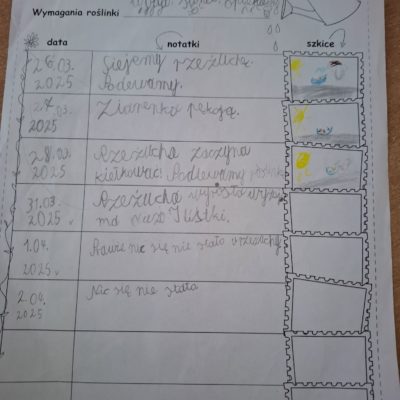 Wymagania roślinki
data notatki szkice
26.03. Siejemy rzeżuchę.
2025 Podlewamy.
27.03. Ziarenka pękają.
2025
28.03. Rzeżucha zaczyna
2025 kiełkować. Podlewamy
31.03. Rzeżucha wyrosła
2025 ma listki.
1.04. nic się nie stało
2025
2.04. Nic się nie stało
2025